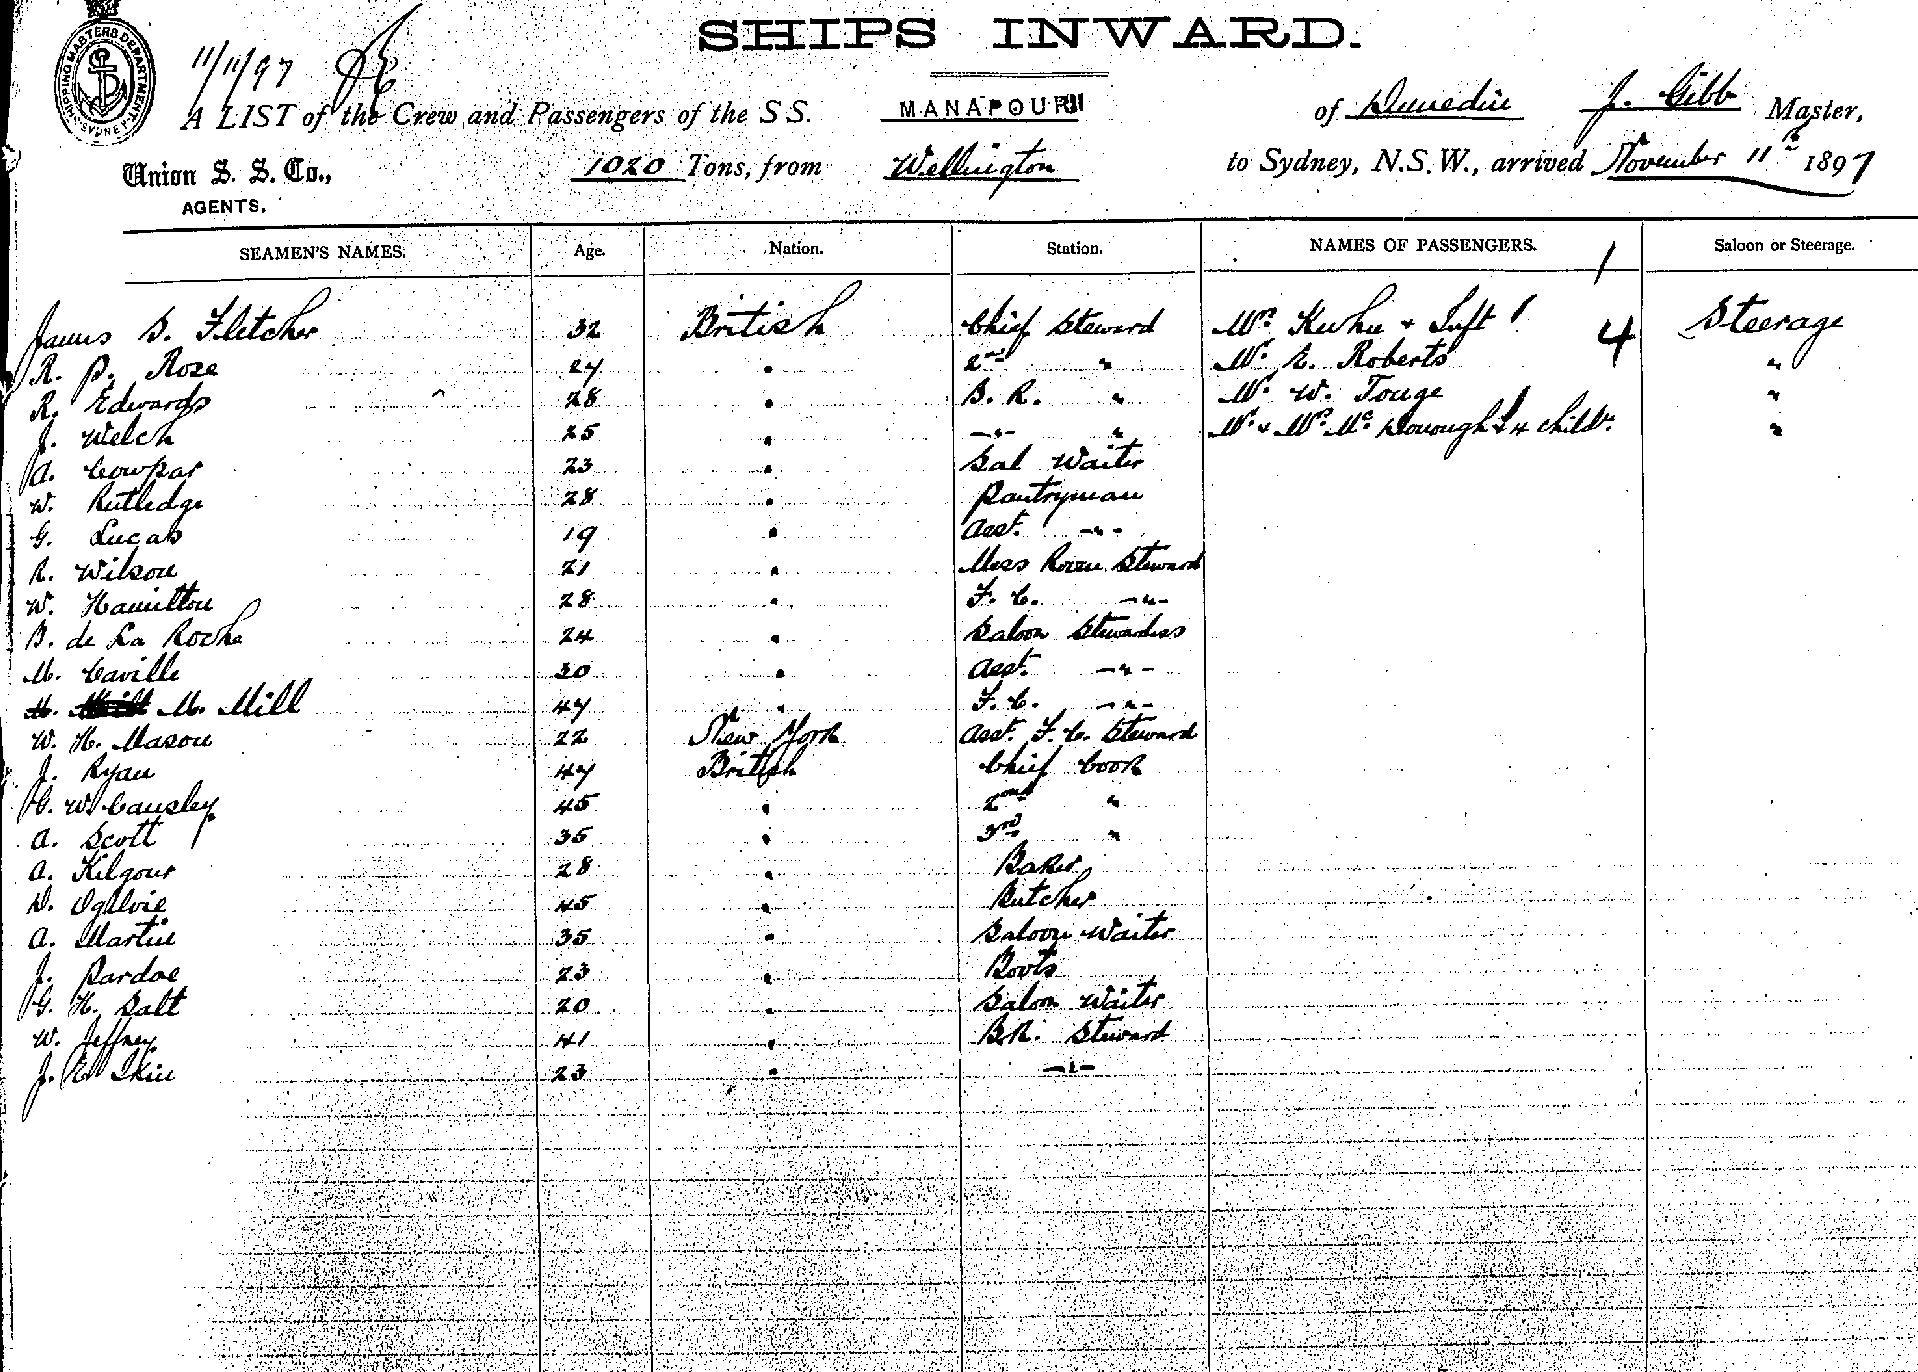 SHIPS INWARD.
SHIPPING MASTERS DEPARTMENT SYDNEY
11/11/97
A LIST of the Crew and Passengers of the S.S. MANAPOURI of Dunedin J. Gibb Master,
Union S. S. Co., AGENTS. 1020 Tons, from Wellington to Sydney, N.S.W., arrived November 11th 1897
SEAMEN'S NAMES. Age. Nation. Station. NAMES OF PASSENGERS. Saloon or Steerage.
James S. Fletcher 32 British Chief Steward Mrs & Inft 1 4 Steerage
R. P. Rose 24 " 2nd " Mr. E. Roberts "
R. Edwards 28 " B. R. " Mr. W. Touge "
J. Welch 25 " -"- " Mr. & Mrs. Mc Donough & 4 childn. "
A. Cowpar 23 " Sal Waiter
W. Rutledge 28 " Pantryman
G. Lucas 19 " Asst. -"-
R. Wilson 21 " Mess Room Steward
W. Hamilton 28 " F. C. -"-
B. de La Roche 24 " Saloon Stewardess
M. Caville 30 " Asst. -"-
M. M. Mill 47 " F. C. -"-
W. H. Mason 22 New York Asst. F. C. Steward
J. Ryan 47 British Chief Cook
G. W. Causley 45 " 2nd "
A. Scott 35 " 3rd "
A. Kilgour 28 " Baker
D. Ogilvie 45 " Butcher
A. Martin 35 " Saloon Waiter
J. Pardoe 23 " Boots
G. H. Salt 20 " Saloon Waiter
W. Jeffrey 41 " B.R. Steward
J. Skin 23 " -"-